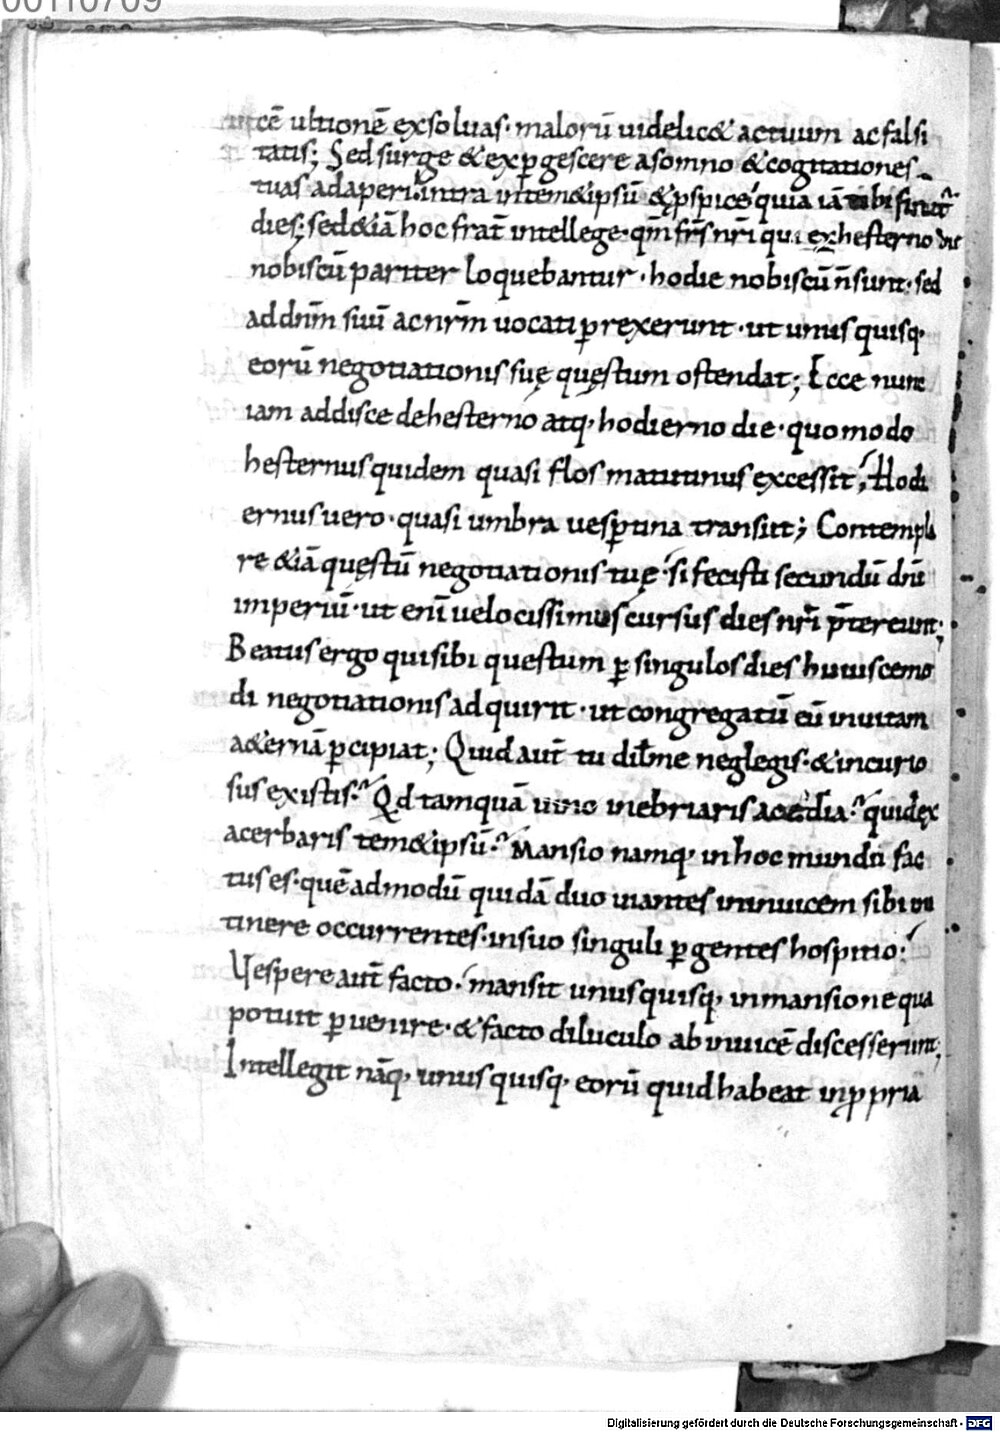 00110709
cē ultionē exsoluas· malorū uidelic& actuum ac falsi
tatis; Sed surge & exp̱gescere a somno & cogitationes
tuas adaperi intra intem&ipsū & p̱spice quia iā tibi finit̄
dies; sed &iā hoc frat̄ intellege· qm̄ frs̄ nr̄i qui ex hesterno die
nobiscū pariter loquebantur· hodie nobiscū n̄ sunt· sed
ad dnm̄ suū ac nrm̄ uocati p̱rexerunt· ut unusquisq·
eorū negotiationis suę questum ostendat; Ecce nunc
iam addisce de hesterno atq· hodierno die· quomodo
hesternus quidem quasi flos matutinus excessit; Hodi
ernus uero· quasi umbra uesp̱tina transiit; Contempla
re &iā quęstū negotiationis tuę· si fecisti secundū dnī
imperiū· ut enī uelocissimus cursus dies nr̄i p̄tereunt;
Beatus ergo qui sibi questum p̱ singulos dies huiuscemo
di negotiationis adquirit· ut congregatū eū in uitam
a&ernā p̱cipiat; Quid aut̄ tu dil̄me neglegis· & incurio
sus existis· Qd tamquā uino inebriaris acedia· quid ex
acerbaris tem&ipsū· Mansio namq· in hoc mundū fac
tus es· quēadmodū quidā duo uiantes in inuicem sibi in
tinere occurrentes· in suo singuli p̱gentes hospitio·
Vespere aut̄ facto· mansit unusquisq· in mansione qua
potuit p̱uenire· & facto diluculo ab inuicē discesserunt;
Intellegit nāq· unusquisq· eorū quid habeat in p̱pria
Digitalisierung gefördert durch die Deutsche Forschungsgemeinschaft - DFG